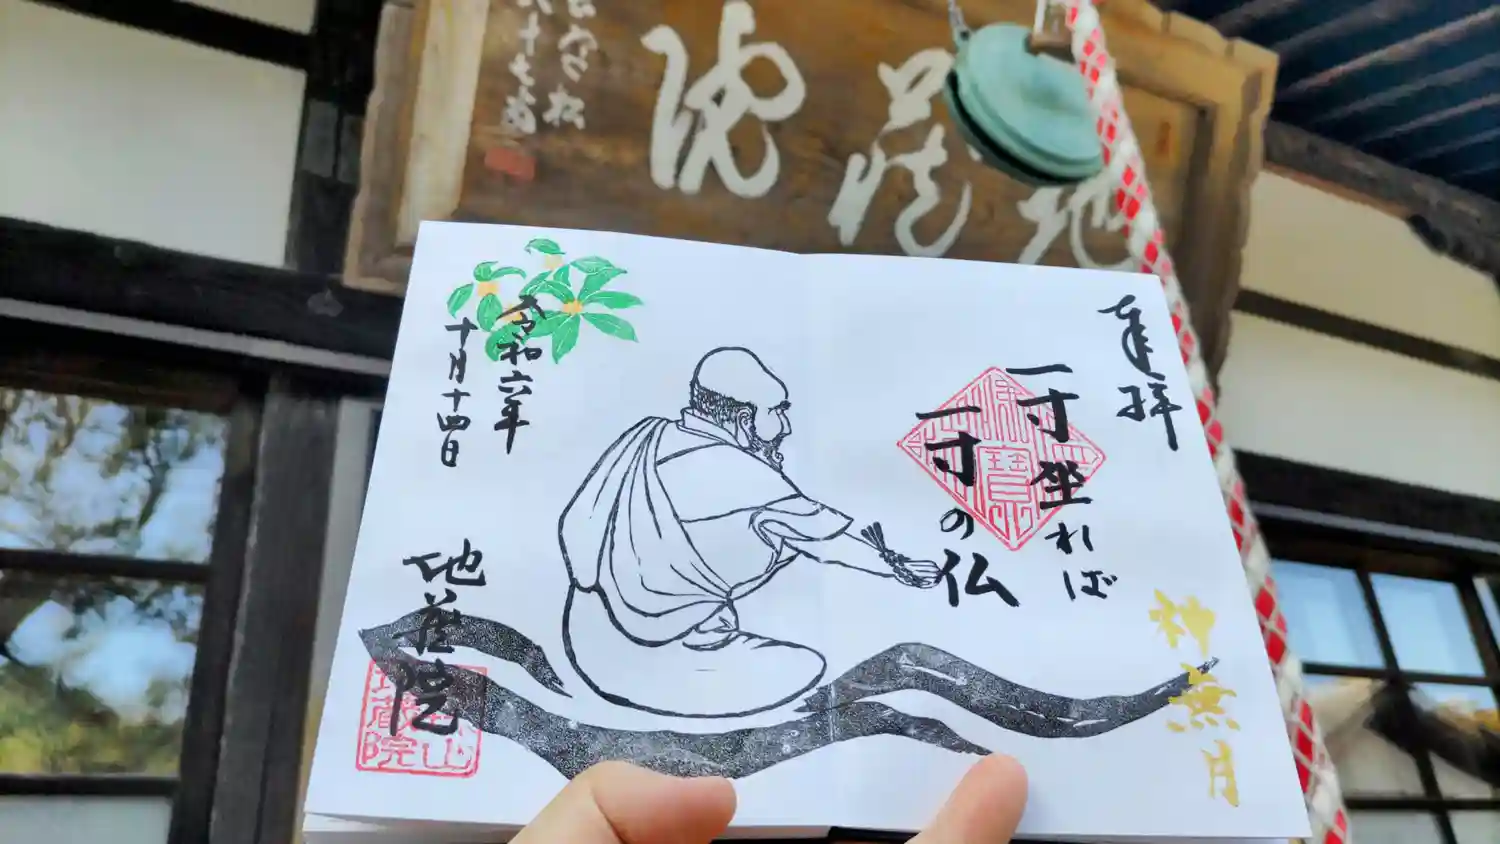 地蔵院
奉拝
一寸坐れば
一寸の仏
神無月
令和六年
十月十四日
地蔵院